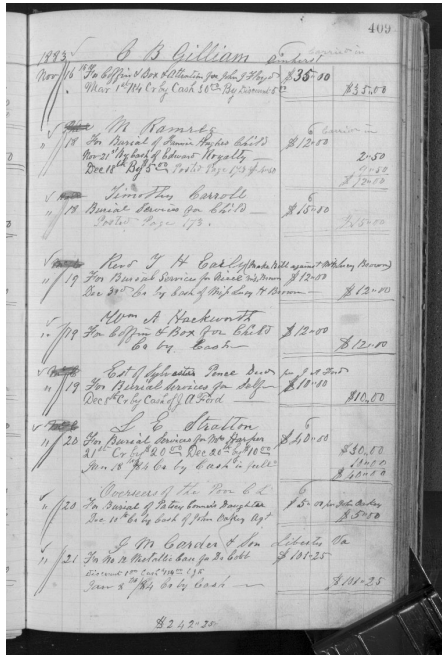 409
1883 C B Gilliam Amherst
Nov 16 For Coffin & Box & Attention for John J $35.00
Mar 1st 84 Cr by Cash 30 By Discount 5 $35.00
M
" 18 For Burial of Hughes Child $12.00
Nov 21 By Cash of Edward Royalty 2.50
Dec 18th By 5.00 Posted Page 173
$12.00
Timothy Carroll
" 18 Burial Services for Child $15.00
Posted Page 173. $15.00
Revd T H Early (Make Bill against Mrs Lucy Brown)
" 19 For Burial Services for $12.00
Dec 3rd Cr by Cash of Miss Lucy H Brown $12.00
Wm A Hackworth
" 19 For Coffin & Box for Child $12.00
Cr by Cash $12.00
Est of Sylvester Pence Decd per J A Ford
" 19 For Burial Services for Self $10.00
Dec 5th Cr by Cash of J A Ford $10.00
L E Stratton
" 20 For Burial Services for Mrs Harper $40.00
21st Cr by $20.00 Dec 20th by $10.00 $30.00
Jan 18th 84 Cr by Cash in full 10.00
$40.00
Overseers of the Poor C d
" 20 For Burial of Daughter $5.00 per John Oakey
Dec 11th Cr by Cash of John Oakey Agt $5.00
J M Carder & Son Liberty Va
" 21 For No 12 Metallic Case for $101.25
Discount
8th /84 Cr by Cash $101.25
$242.25